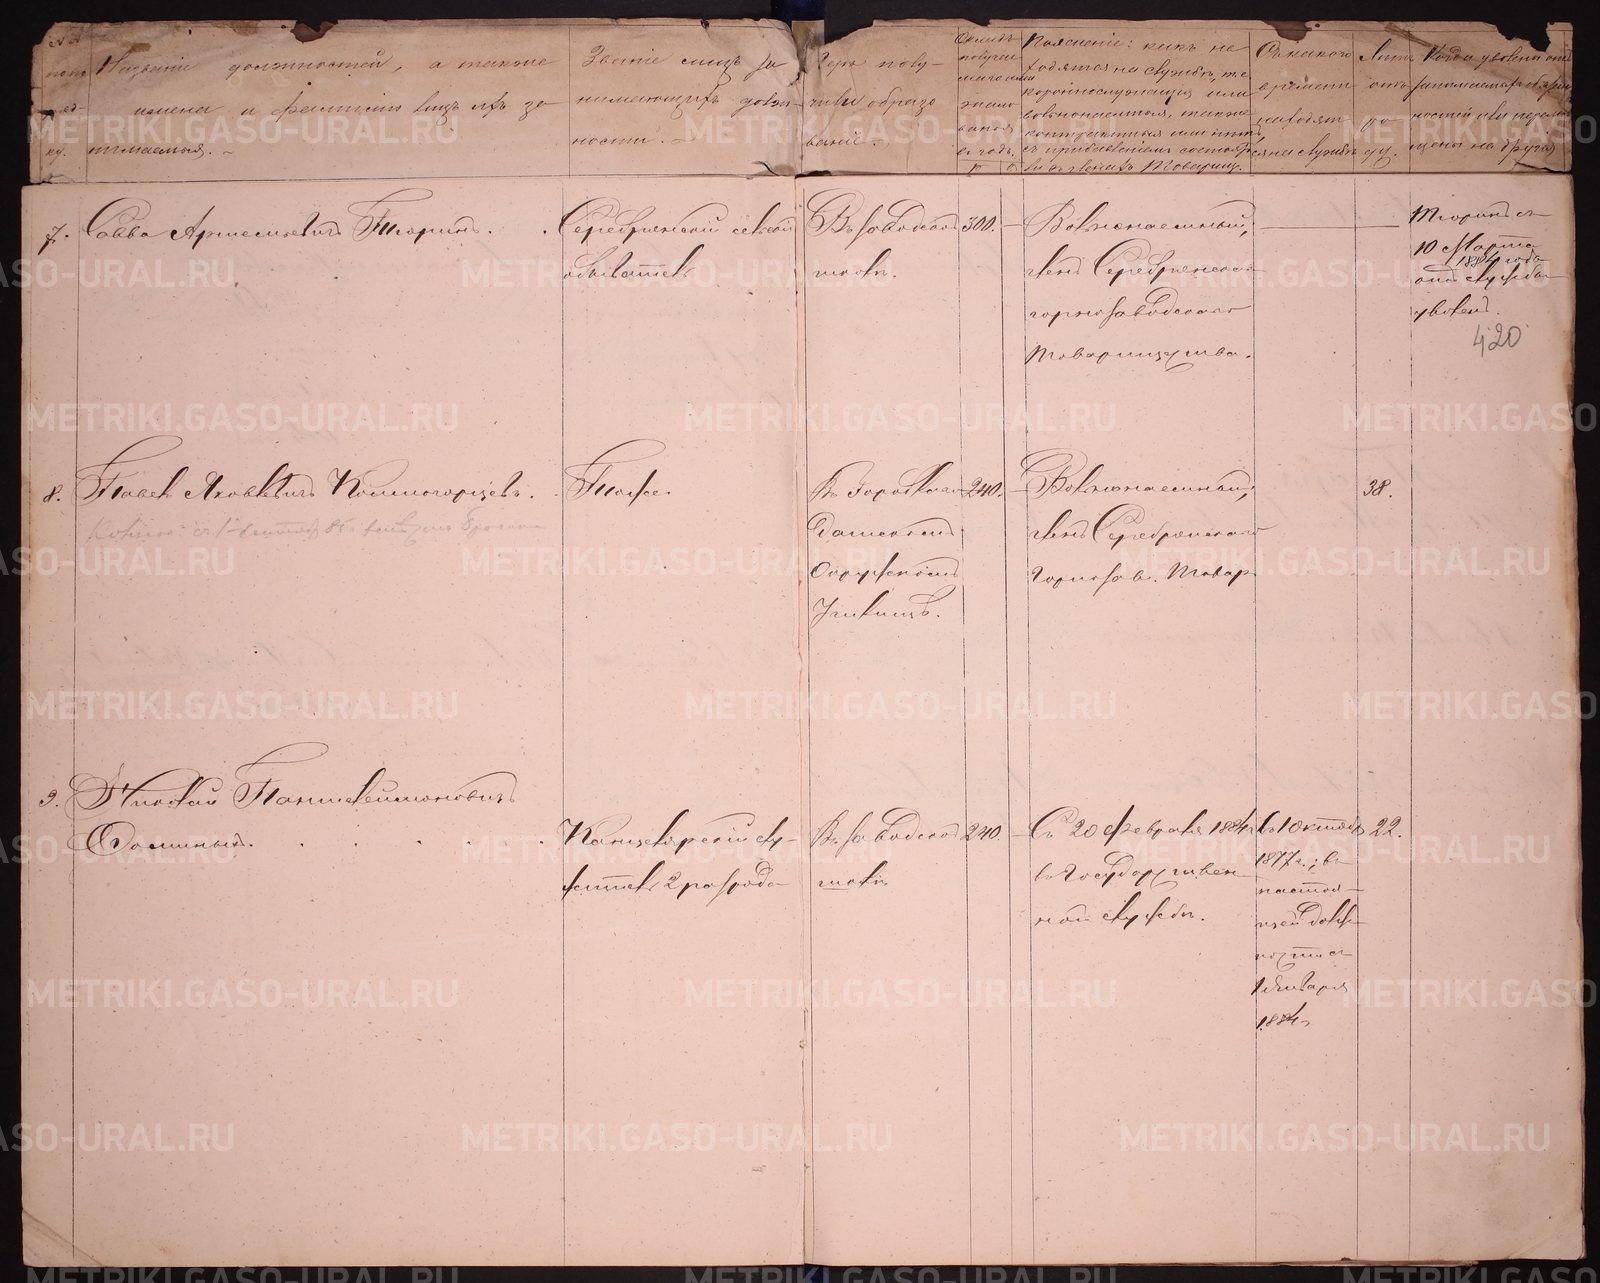 Названіе должностей, а также
имена и фамиліи лицъ ихъ за
нимаемыя.
Званіе лицъ за
нимающихъ долж
ности.
Гдѣ полу-
чили образо
ваніе.
Окладъ
получае
маго
жало
ванья
въ годъ.
Поясненіе: какъ на
ходятся на службѣ, т.е.
короннослужащія или
вольнонаемныя, также
контрактныя или нѣтъ,
съ прибавленіемъ
Товарищ.
Съ какого
времени
находят
ся на службѣ
Лѣта
отъ
ро
ду.
Когда уволены отъ
занимаемыхъ долж
ностей или перемѣ
щены на другія
7. Савва Артемьевичъ Тюринъ.
Серебрянскій сельскій
обыватель
Въ заводской
школѣ.
300.
Вольнонаемный,
членъ Серебрянскаго
горнозаводскаго
Товарищества.
Тюринъ съ
10 Марта
1884 года
отъ службы
уволенъ.
420
8. Павелъ Яковлевичъ Коммогорцевъ.
Тоже
Въ Горобла
датскомъ
Окружномъ
Училищѣ.
240.
Вольнонаемный,
членъ Серебрянскаго
Горнозав. Товар
38.
9. Николай Пантелеймоновичъ
Фоминыхъ.
Канцелярскій слу-
житель 2 разряда
Въ заводской
школѣ
240.
Съ 20 Февраля 1884 г.
въ Государствен
ной службѣ.
съ 1 Октября
1877 г.; въ
настоя-
щей долж-
ности съ
1 Января
1884 г.
22.
METRIKI.GASO-URAL.RU